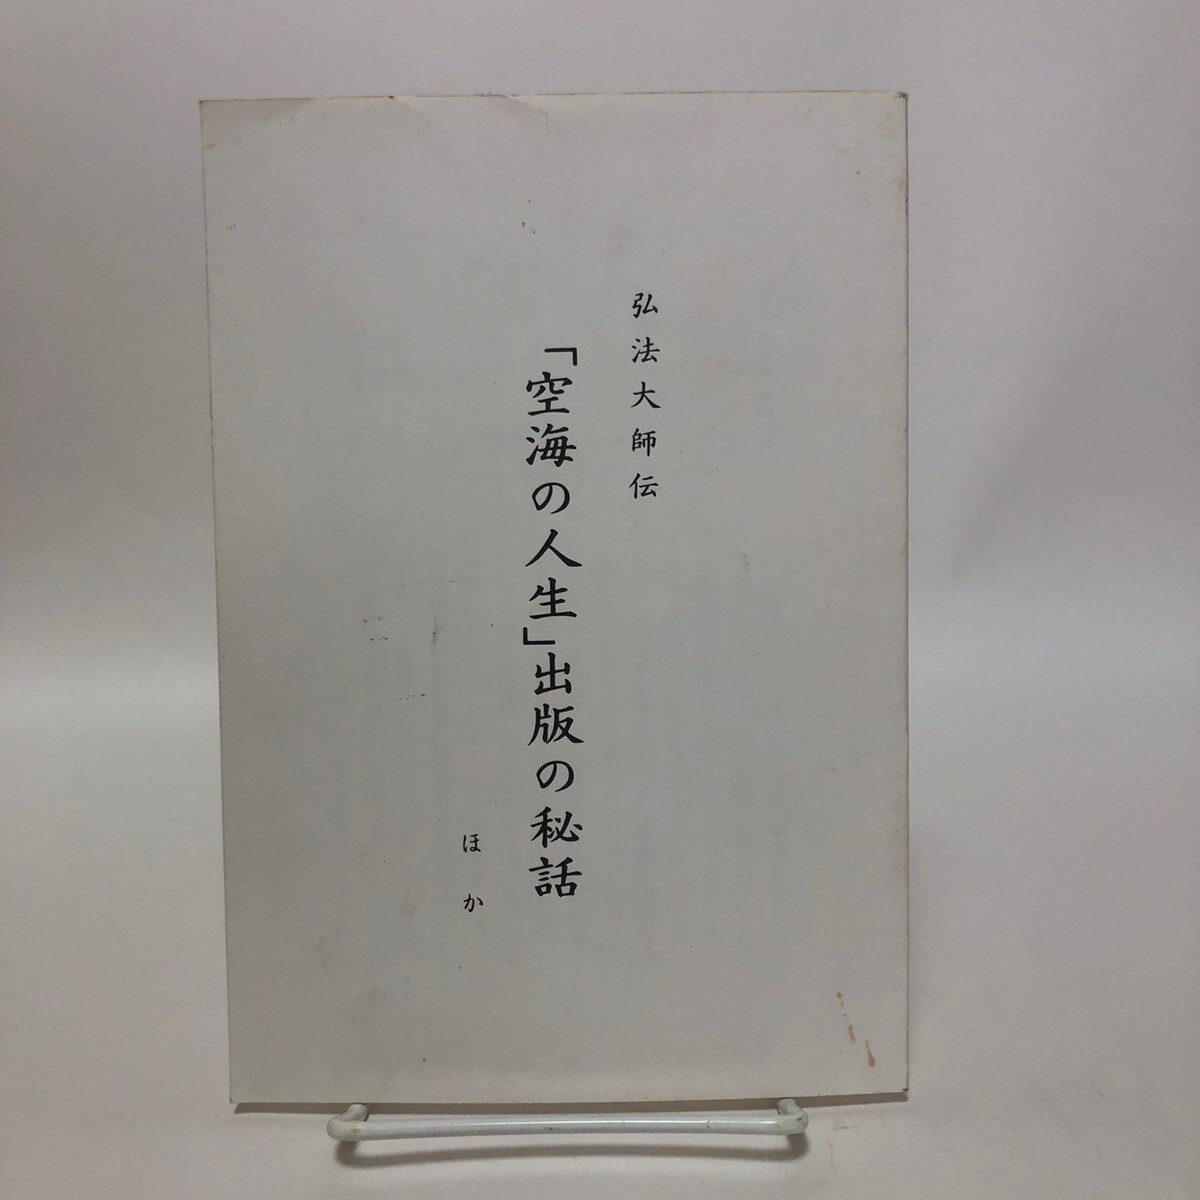 弘法大師伝
「空海の人生」出版の秘話
ほか